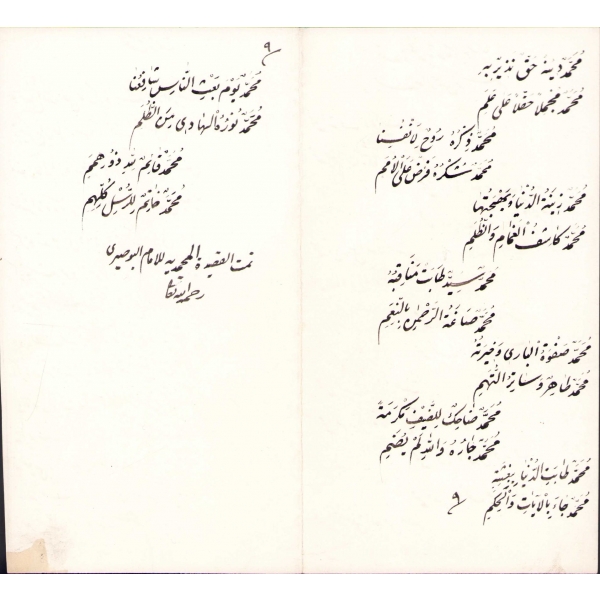 مُحَمَّدٌ دِينُهُ حَقٌّ نَذِيرٌ بِهِ
مُحَمَّدٌ مُجْمَلًا حَقًّا عَلَى عَلَمِ
مُحَمَّدٌ ذِكْرُهُ رُوحٌ لِأَنْفُسِنَا
مُحَمَّدٌ شُكْرُهُ فَرْضٌ عَلَى الْأُمَمِ
مُحَمَّدٌ زِينَةُ الدُّنْيَا وَبَهْجَتُهَا
مُحَمَّدٌ كَاشِفُ الْغَمَامِ وَالظُّلَمِ
مُحَمَّدٌ سَيِّدٌ طَابَتْ مَنَاقِبُهُ
مُحَمَّدٌ صَاغَهُ الرَّحْمٰنُ بِالنِّعَمِ
مُحَمَّدٌ صَفْوَةُ الْبَارِى وَخِيرَتُهُ
مُحَمَّدٌ طَاهِرٌ وَسَاتِرُ التُّهَمِ
مُحَمَّدٌ ضَاحِكٌ لِلضَّيْفِ مَكْرَمَةً
مُحَمَّدٌ جَارُهُ وَاللهِ لَمْ يُضَمِ
مُحَمَّدٌ طَابَتِ الدُّنْيَا بِبِعْثَتِهِ
مُحَمَّدٌ جَاءَ بِالْآيَاتِ وَالْحِكَمِ
٩
٩
مُحَمَّدٌ يَوْمَ بَعْثِ النَّاسِ شَافِعُنَا
مُحَمَّدٌ نُورُهُ الْهَادِى مِنَ الظُّلَمِ
مُحَمَّدٌ قَائِمٌ لِلّٰهِ ذُو هِمَمِ
مُحَمَّدٌ خَاتَمٌ لِلرُّسْلِ كُلِّهِمِ
تمت القصيدة المحمديه للامام البوصيرى
رحمه الله تعا